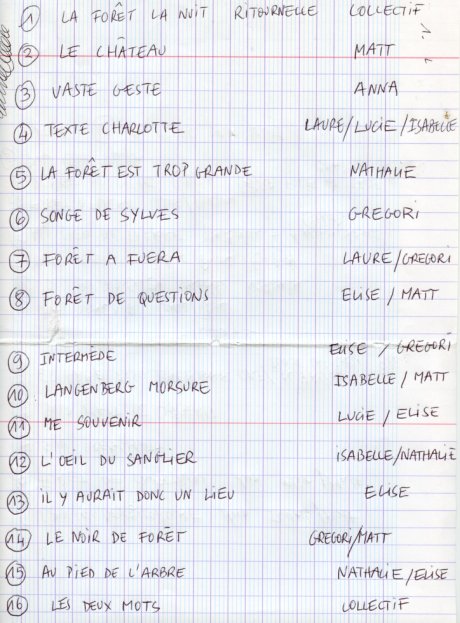 1 LA FORÊT LA NUIT RITOURNELLE COLLECTIF
2 LE CHÂTEAU MATT
3 VASTE GESTE ANNA
4 TEXTE CHARLOTTE LAURE/LUCIE/ISABELLE
5 LA FORÊT EST TROP GRANDE NATHALIE
6 SONGE DE SYLVES GREGORI
7 FORÊT A FUERA LAURE/GREGORI
8 FORÊT DE QUESTIONS ELISE / MATT
9 INTERMÈDE ELISE / GREGORI
10 LANGENBERG MORSURE ISABELLE / MATT
11 ME SOUVENIR LUCIE / ELISE
12 L'OEIL DU SANGLIER ISABELLE/NATHALIE
13 IL Y AURAIT DONC UN LIEU ELISE
14 LE NOIR DE FORÊT GREGORI/MATT
15 AU PIED DE L'ARBRE NATHALIE/ELISE
16 LES DEUX MOTS COLLECTIF